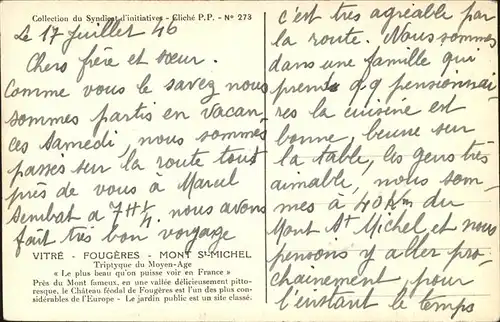 Collection du Syndicat d'initiatives - Cliché P.P. - N° 273
Le 17 Juillet 46
Chers frère et sœur.
Comme vous le savez nous
sommes partis en vacan-
ces Samedi, nous sommes
passés sur la route tout
près de vous à Marcel
Sembat à 7H 1/4. nous avons
fait très bon voyage
VITRÉ - FOUGÈRES - MONT St-MICHEL
Triptyque du Moyen-Age
« Le plus beau qu'on puisse voir en France »
Près du Mont fameux, en une vallée délicieusement pitto-
resque, le Château féodal de Fougères est l'un des plus con-
sidérables de l'Europe - Le jardin public est un site classé.
c'est très agréable par
la route. Nous sommes
dans une famille qui
prend q.q pensionnai-
res la cuisine est
bonne, beurre sur
la table, les gens très
aimable, nous som-
mes à 40 Km du
Mont St Michel et nous
pensons y aller pro-
chainement, pour
l'instant le temps